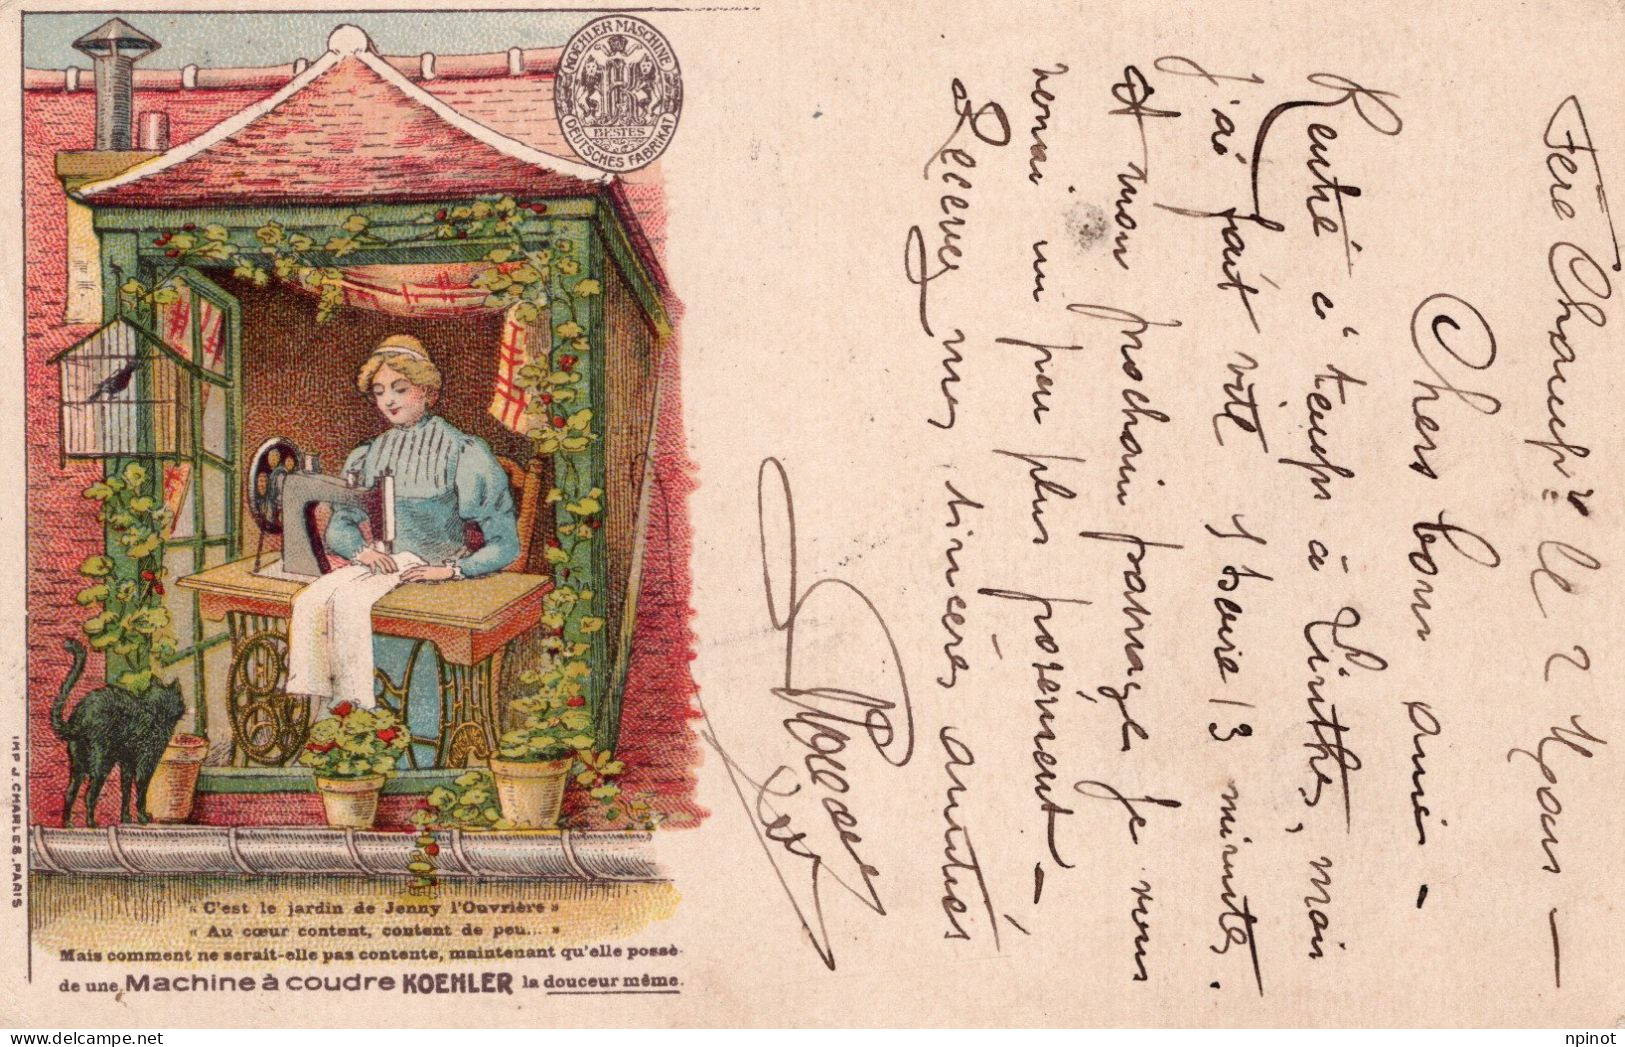 KOEHLER MASCHINE
BESTES
DEUTSCHES FABRIKAT
« C'est le jardin de Jenny l'Ouvrière »
« Au cœur content, content de peu... »
Mais comment ne serait-elle pas contente, maintenant qu'elle possè-
de une Machine à coudre KOEHLER la douceur même.
IMP J. CHARLES. PARIS
le 2
Chers bons amis -
Rentré à temps à mais
j'ai fait vite 1 heure 13 minutes.
A mon prochain passage je vous
verrai un peu plus posément -
Recevez mes sincères amitiés
npinot